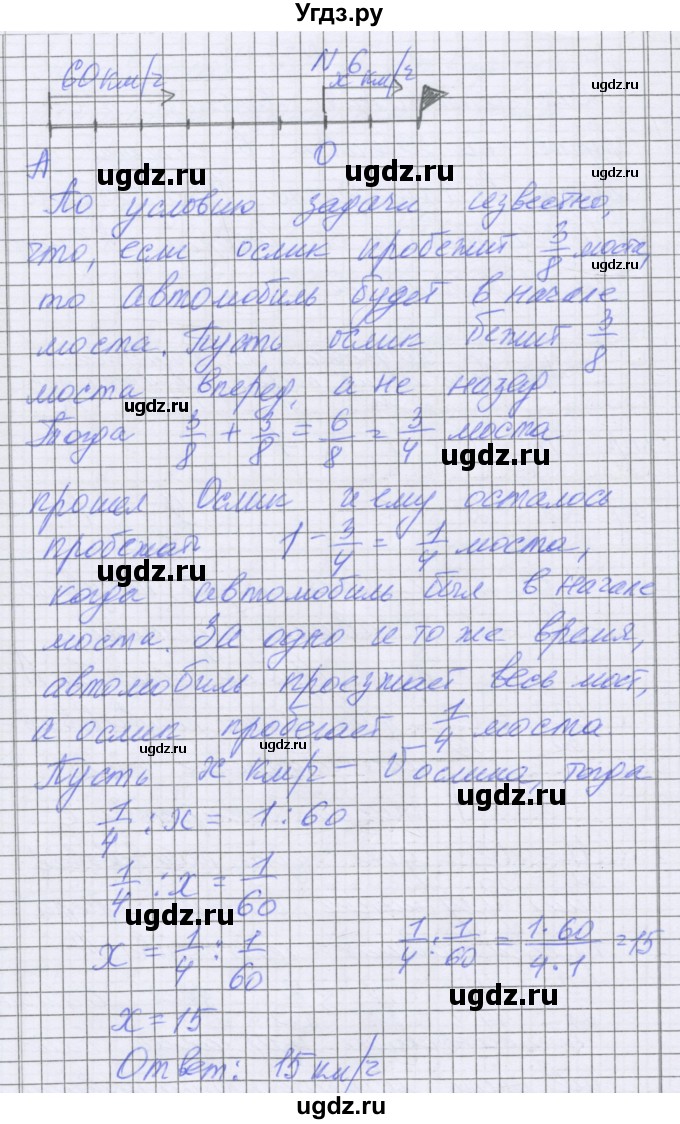 Угдз.ру
60 км/ч N x б км/ч
ugdz.ru
A O
ugdz.ru ugdz.ru ugdz.ru
По условию задачи известно,
что, если ослик пробежит 3/8 моста,
ugdz.ru
то автомобиль будет в начале
моста. Пусть ослик бежит 3/8
моста вперед, а не назад.
ugdz.ru
Тогда 3/8 + 3/8 = 6/8 = 3/4 моста
ugdz.ru
прошел Ослик и ему осталось
пробежать 1 - 3/4 = 1/4 моста,
ugdz.ru
когда автомобиль был в начале
моста. За одно и то же время,
автомобиль проезжает весь мост,
а ослик пробегает 1/4 моста
ugdz.ru ugdz.ru
Пусть x км/ч - V ослика, тогда
ugdz.ru
1/4 : x = 1 : 60
1/4 : x = 1/60
ugdz.ru
x = 1/4 : 1/60 1/4 : 1/60 = 1·60/4·1 = 15
ugdz.ru
x = 15
Ответ: 15 км/ч
ugdz.ru